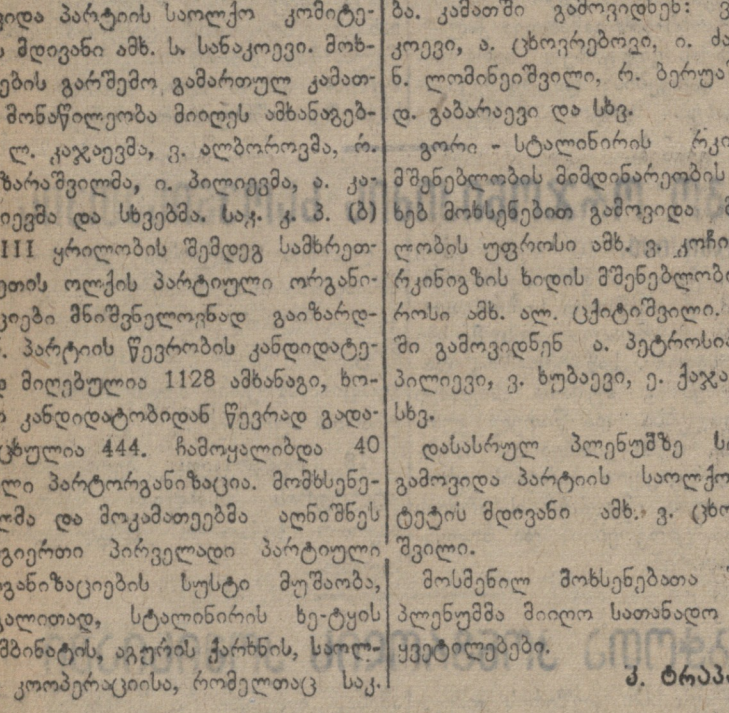 ვიდა პარტიის საოლქო კომიტე-
მდივანი ამხ. ს. სანაკოევი. მოხ-
ების გარშემო გამართულ კამათ-
მონაწილეობა მიიღეს ამხანაგებ-
ლ. კაჯაევმა, ვ. ალბოროვმა, რ.
ზარაშვილმა, ი. პილიევმა, ა. კა-
იევმა და სხვებმა. საკ. კ. პ. (ბ)
III ყრილობის შემდეგ სამხრეთ-
ეთის ოლქის პარტიული ორგანი-
ციები მნიშვნელოვნად გაიზარდ-
პარტიის წევრობის კანდიდატე-
მიღებულია 1128 ამხანაგი, ხო-
კანდიდატობიდან წევრად გადა-
ცხულია 444. ჩამოყალიბდა 40
ლი პარტორგანიზაცია. მომხსენე-
ლმა და მოკამათეებმა აღნიშნეს
გიერთი პირველადი პარტიული
განიზაციების სუსტი მუშაობა,
გალითად, სტალინირის ხე-ტყის
მბინატის, აგურის ქარხნის, საოლ-
კოოპერაციისა, რომელთაც საკ.
ბა. კამათში გამოვიდნენ: ვ
კოევი, ა. ცხოვრებოვი, ი. ძა
ნ. ლომინეიშვილი, რ. ბერუა
დ. გაბარაევი და სხვ.
გორი - სტალინირის რკი
მშენებლობის მიმდინარეობის
ხებ მოხსენებით გამოვიდა მ
ლობის უფროსი ამხ. ვ. კოჩი
რკინიგზის ხიდის მშენებლობი
როსი ამხ. ალ. ცქიტიშვილი.
ში გამოვიდნენ ა. პეტროსია
პილიევი, ვ. ხუბაევი, ე. ქაჯა
სხვ.
დასასრულ პლენუმზე სი
გამოვიდა პარტიის საოლქო
ტეტის მდივანი ამხ. ვ. ცხო
შვილი.
მოსმენილ მოხსენებათა
პლენუმმა მიიღო სათანადო
ყვეტილებები.
კ. ტრაპ